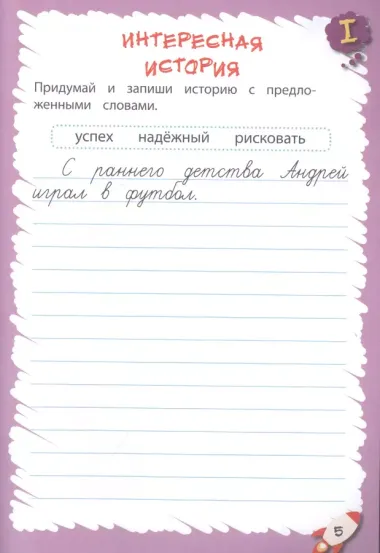 I
ИНТЕРЕСНАЯ
ИСТОРИЯ
Придумай и запиши историю с предло-
женными словами.
успех надёжный рисковать
С раннего детства Андрей
играл в футбол.
5